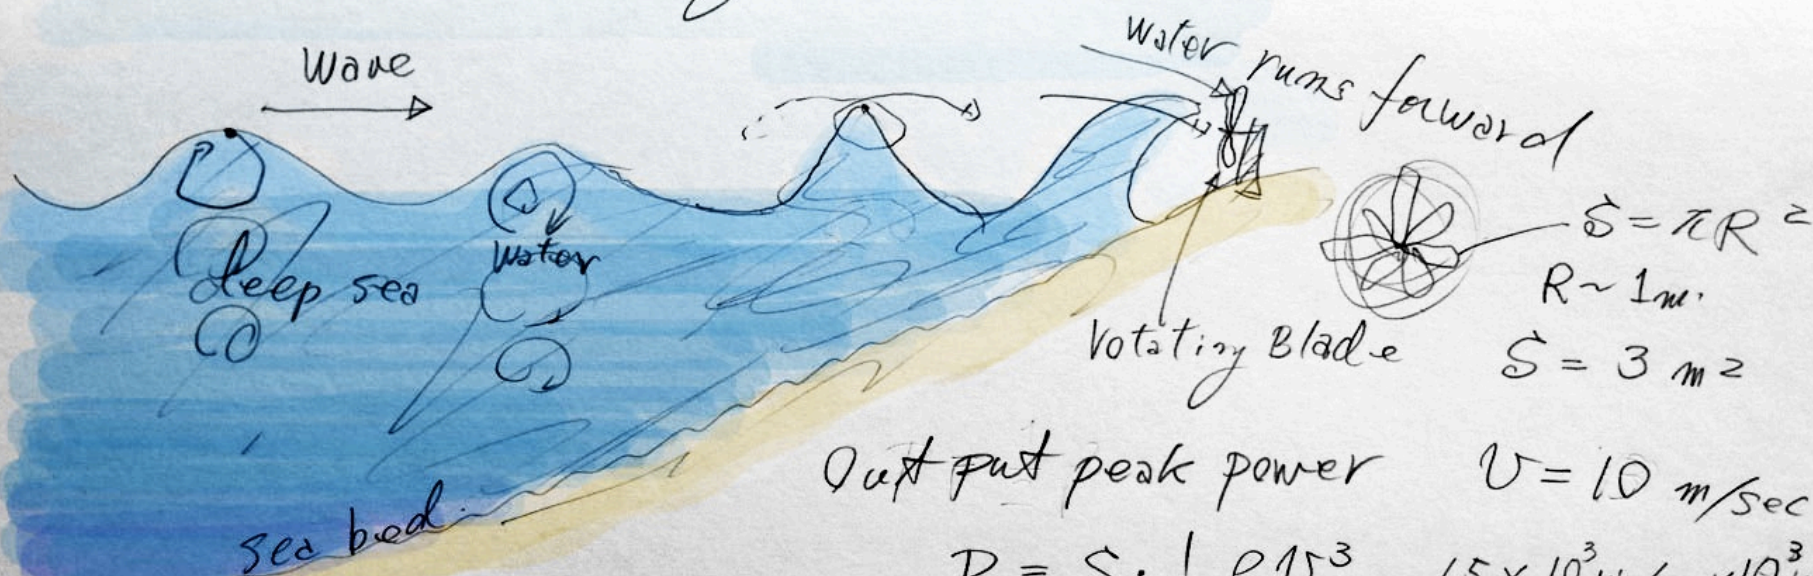 Wave
Water runs forward
Water
deep sea
S = πR²
R ~ 1m.
Rotating Blade
S = 3 m²
Output peak power
V = 10 m/sec
sea bed